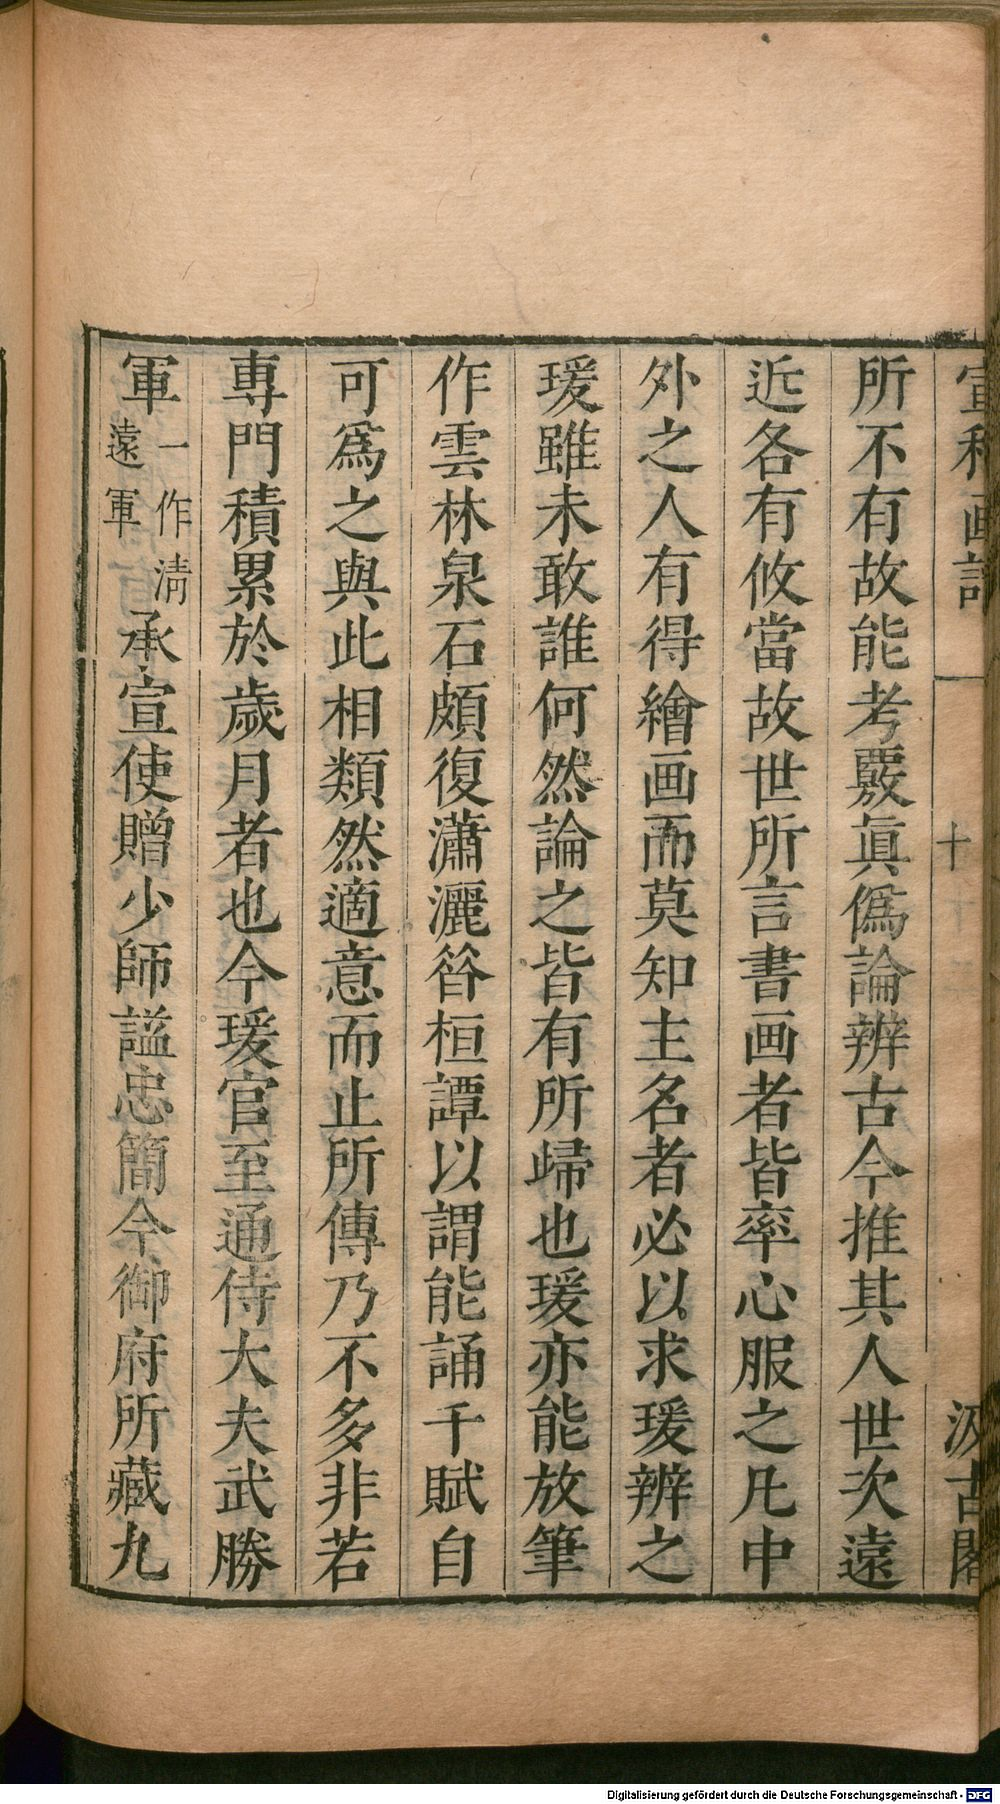 宣和画譜 十 汲古閣
所不有故能考覈眞僞論辨古今推其人世次遠
近各有攸當故世所言書画者皆率心服之凡中
外之人有得繪画而莫知主名者必以求瑗辨之
瑗雖未敢誰何然論之皆有所歸也瑗亦能放筆
作雲林泉石頗復瀟灑昝桓譚以謂能誦千賦自
可爲之與此相類然適意而止所傳乃不多非若
專門積累於歲月者也今瑗官至通侍大夫武勝
軍一作淸遠軍承宣使贈少師謚忠簡今御府所藏九
Digitalisierung gefördert durch die Deutsche Forschungsgemeinschaft - DFG